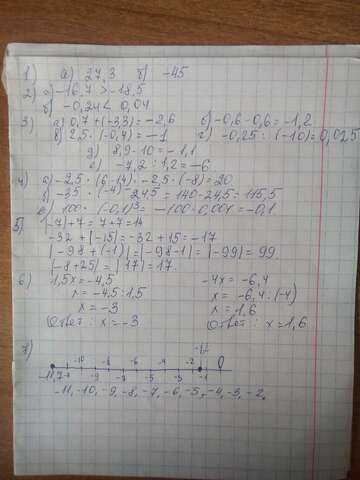 1) а) 27,3 б) -45
2) а) -16,7 > -18,5
б) -0,24 < 0,04
3) а) 0,7 + (-3,3) = -2,6 б) -0,6 - 0,6 = -1,2
в) 2,5 · (-0,4) = -1 г) -0,25 : (-10) = 0,025
д) 8,9 - 10 = -1,1
е) -7,2 : 1,2 = -6
4) а) -2,5 · (6-14) = -2,5 · (-8) = 20
б) -35 · (-4) - 24,5 = 140 - 24,5 = 115,5
в) 100 · (-0,1)³ = -100 · 0,001 = -0,1
5) |-7| + 7 = 7 + 7 = 14
-32 + |-15| = -32 + 15 = -17
|-98 + (-1)| = |-98 - 1| = |-99| = 99
|-8 + 25| = |17| = 17
6) 1,5x = -4,5 -4x = -6,4
x = -4,5 : 1,5 x = -6,4 : (-4)
x = -3 x = 1,6
Ответ: x = -3 Ответ: x = 1,6
7)
-10 -8 -6 -4 -2 0
-11,7 -9 -7 -5 -3 -1
-11, -10, -9, -8, -7, -6, -5, -4, -3, -2.